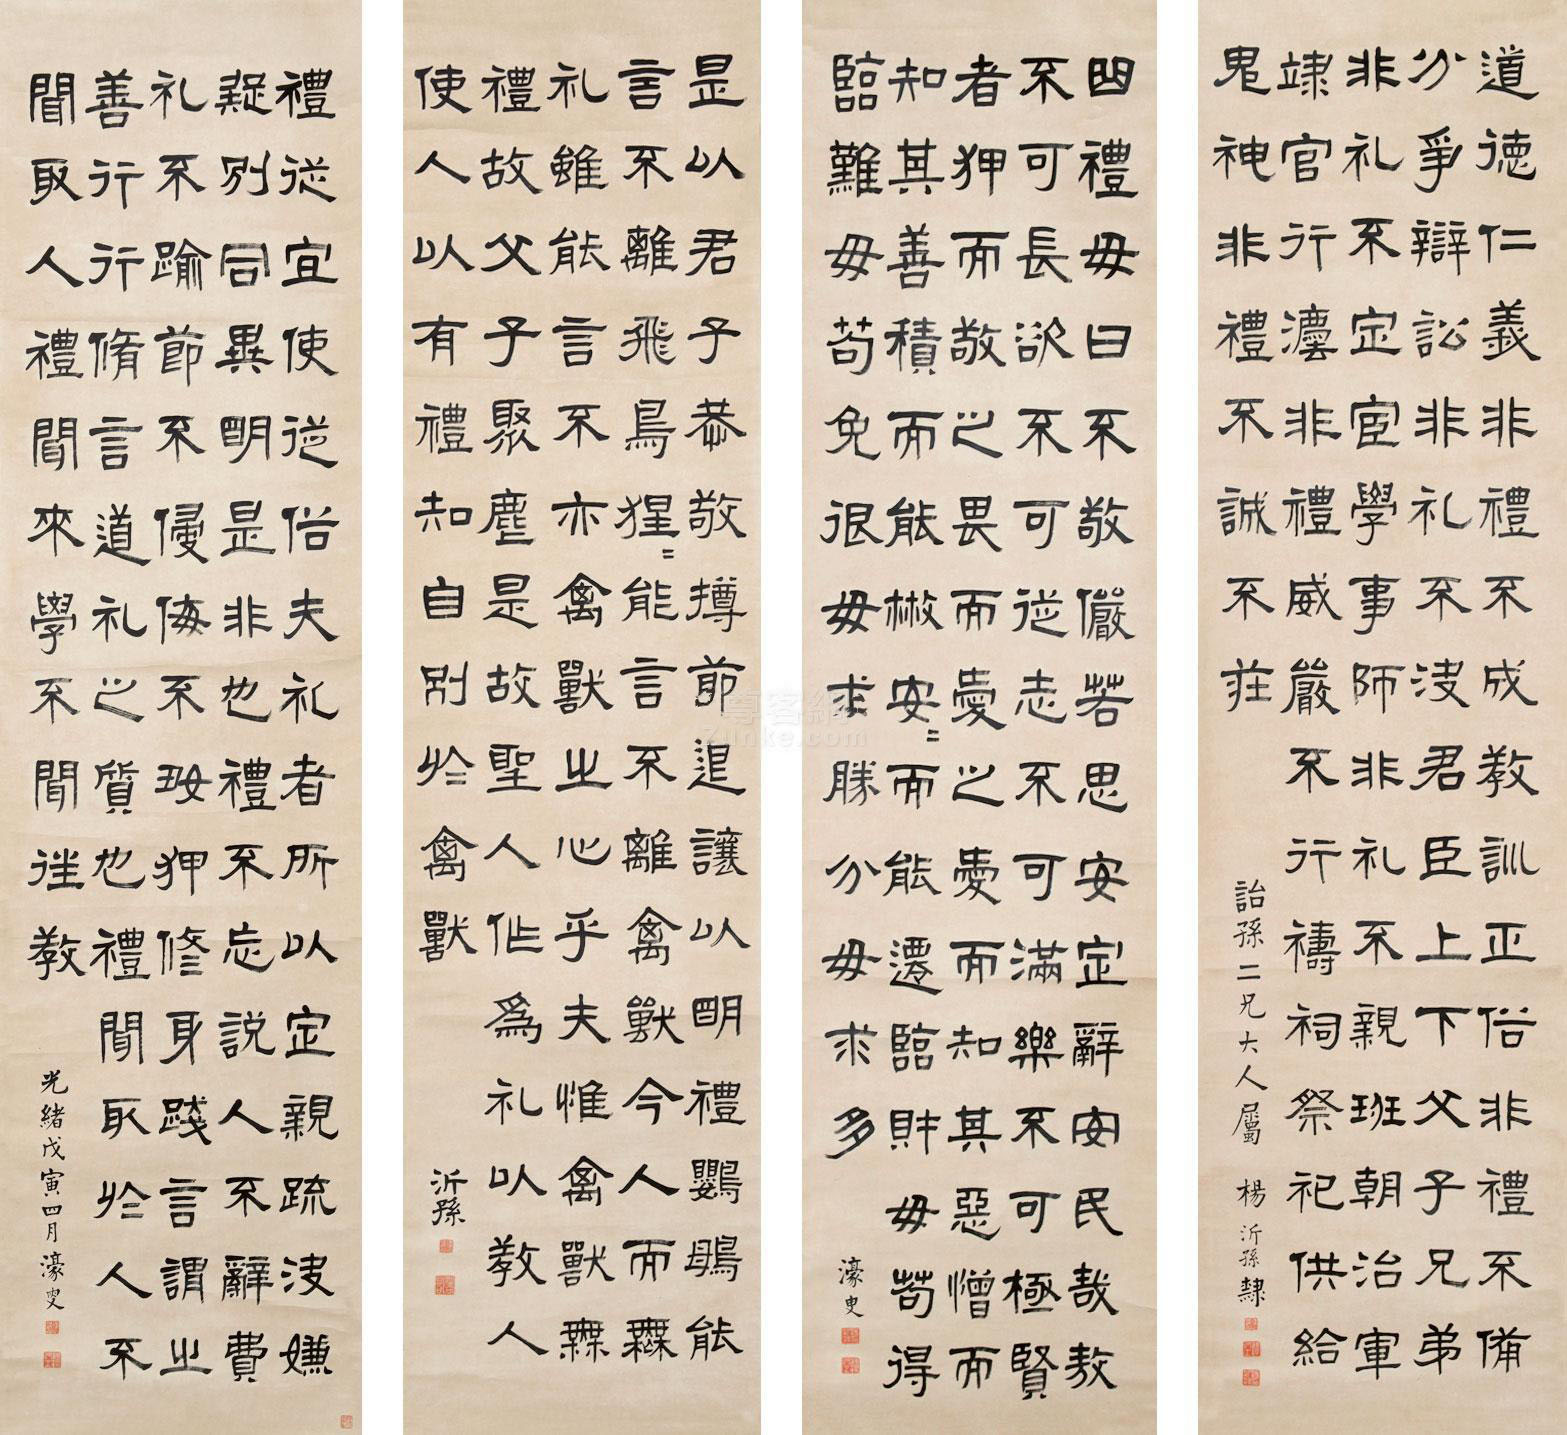 道德仁義非禮不成教訓正俗非禮不備
分爭辯訟非礼不決君臣上下父子兄弟
非礼不定宦學事師非礼不親班朝治軍
䇐官行灋非禮威嚴不行禱祠祭祀供給
鬼神非禮不誠不莊
詒孫二兄大人屬 楊沂孫隸
曲禮毋曰不敬儼若思安定辭安民哉敖
不可長欲不可從志不可滿樂不可極賢
者狎而敬之畏而愛之愛而知其惡憎而
知其善積而能散安=而能遷臨財毋苟得
臨難毋苟免很毋求勝分毋求多
濠叟
是以君子恭敬撙節退讓以明禮鸚鵡能
言不離飛鳥猩=能言不離禽獸今人而無
礼雖能言不亦禽獸之心乎夫惟禽獸無
禮故父子聚麀是故聖人作爲礼以教人
使人以有禮知自別於禽獸
沂孫
禮從宜使從俗夫礼者所以定親疏決嫌
疑別同異明是非也禮不忘說人不辭費
礼不踰節不侵侮不好狎修身踐言謂之
善行行脩言道礼之質也禮聞取於人不
聞取人禮聞來學不聞往教
光緒戊寅四月濠叟
尊客網
Zunke.com